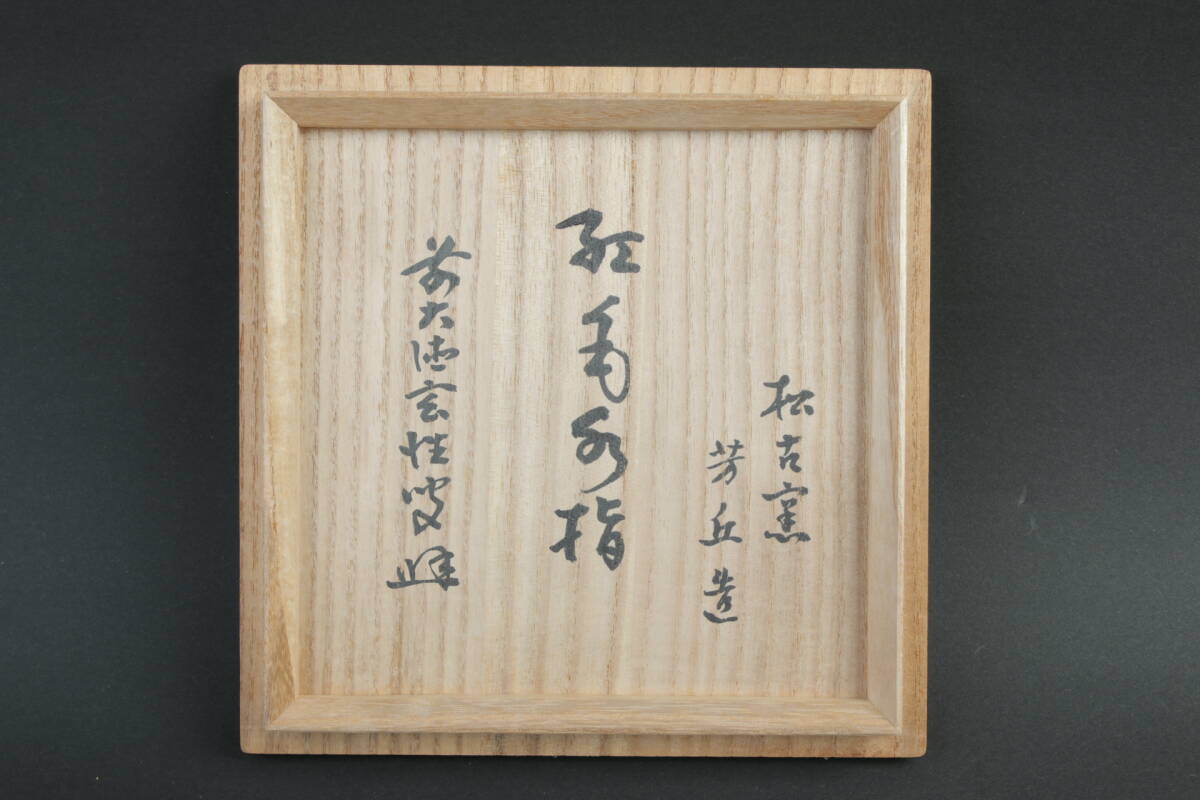 松古窯
芳丘造
紅毛水指
前大徳玄性叟